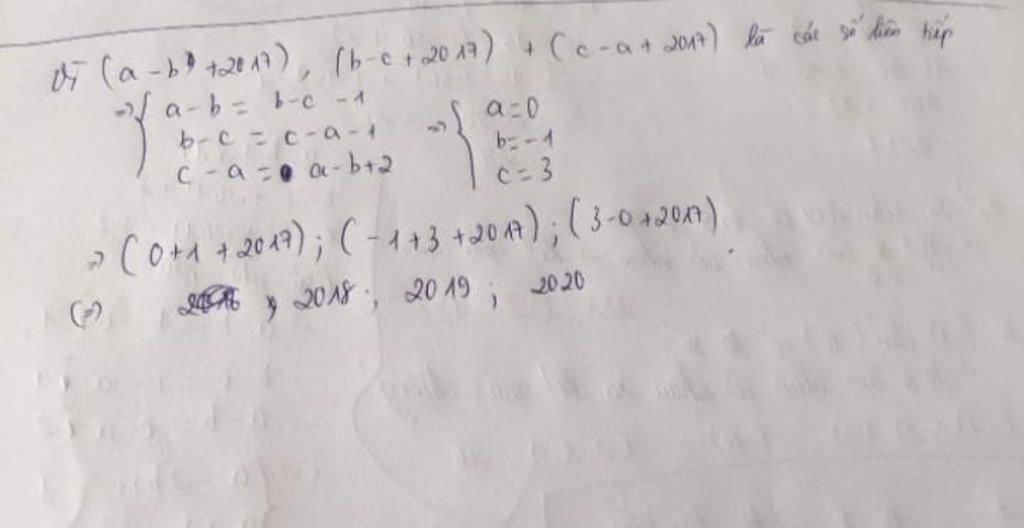 Vì (a-b+2017), (b-c+2017) + (c-a+2017) là các số liên tiếp
=> { a-b = b-c-1
b-c = c-a-1 => { a=0
b=-1
c-a = a-b+2 c=3
=> (0+1+2017); (-1+3+2017); (3-0+2017).
(=) 2018; 2019; 2020